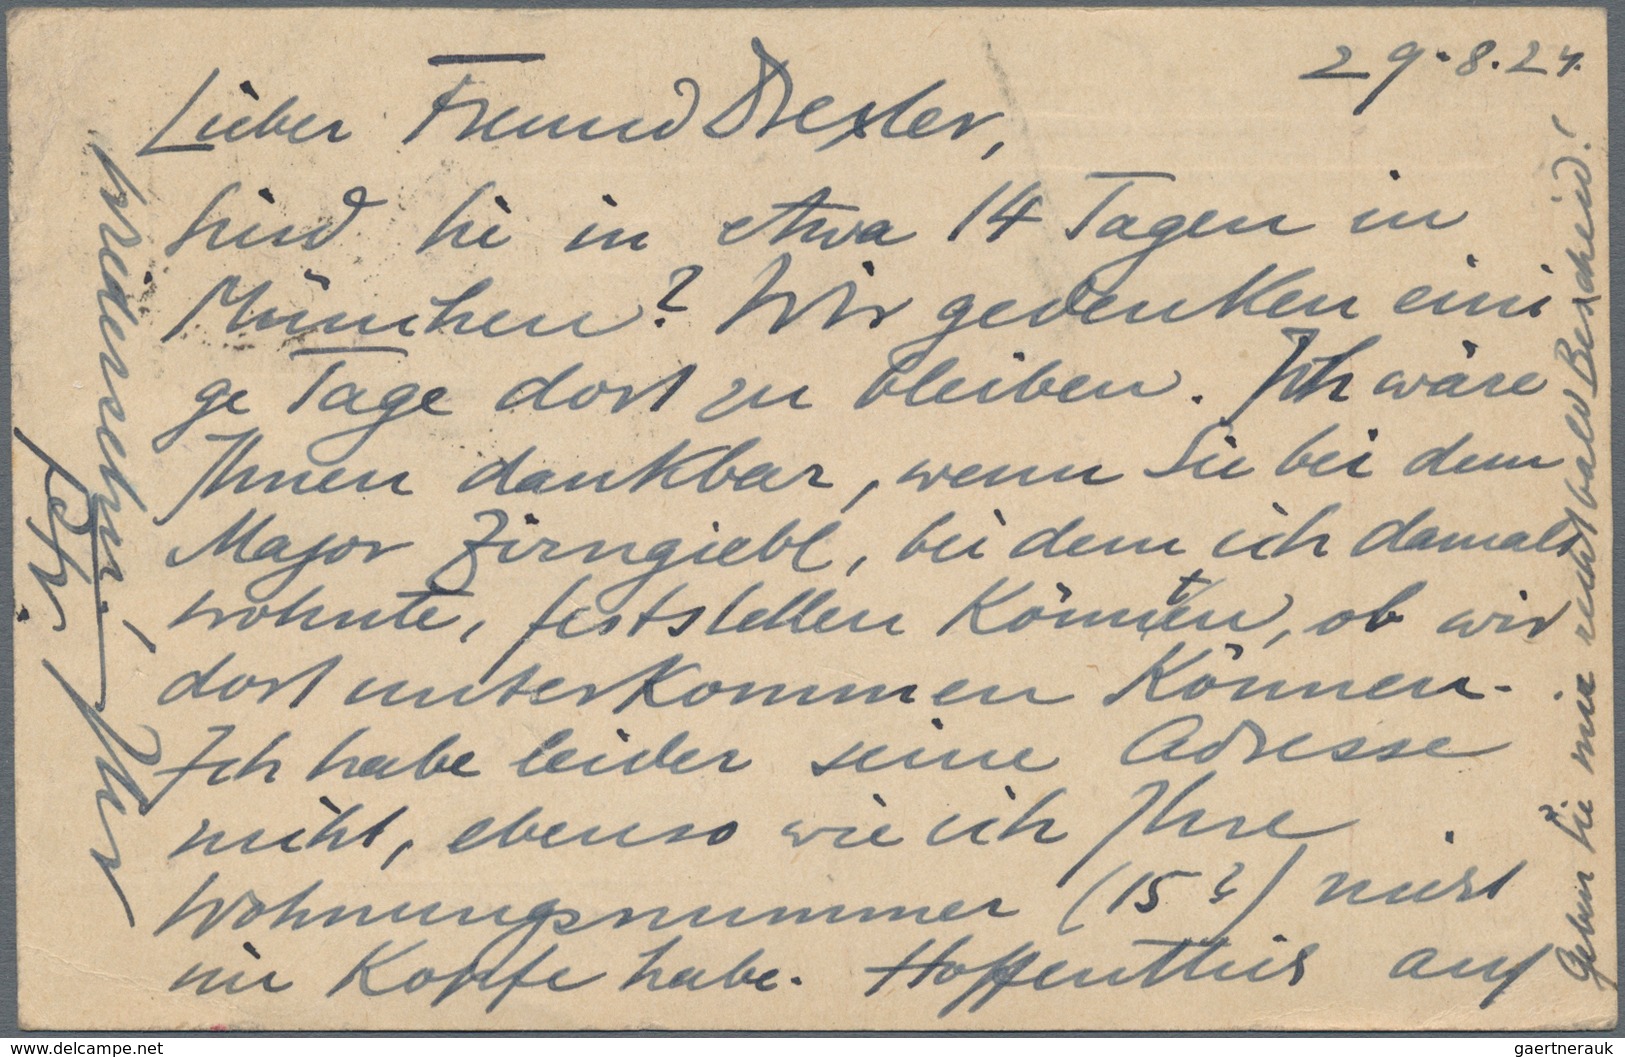 29.8.24.
Lieber Freund Drexler,
sind Sie in etwa 14 Tagen in
München? Wir gedenken eini
ge Tage dort zu bleiben. Ich wäre
Ihnen dankbar, wenn Sie bei dem
Major Zirngiebl, bei dem ich damals
wohnte, feststellen könnten, ob wir
dort unterkommen können.
Ich habe leider seine Adresse
nicht, ebenso wie ich Ihre
Wohnungsnummer (15?) nicht
im Kopfe habe. Hoffentlich auf
Wiedersehn!
Ihr
Geben Sie mir recht bald Bescheid!
www.delcampe.net
gaertnerauk